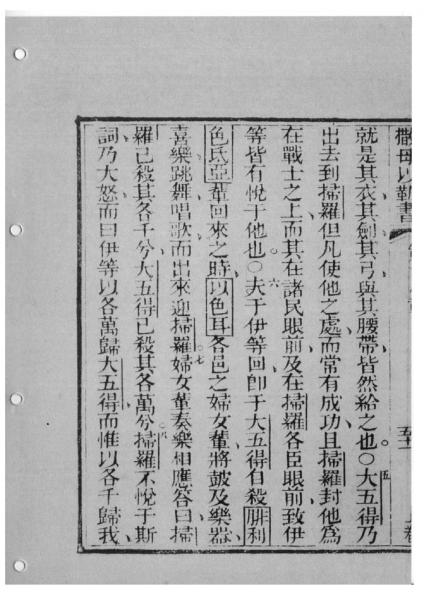 撒母以勒書
五十一
就是其衣其劍其弓與其腰帶皆然給之也○五大五得乃
出去到掃羅但凡使他之處而常有成功且掃羅封他爲
在戰士之上而其在諸民眼前及在掃羅各臣眼前致伊
等皆有悅于他也○六夫于伊等回卽于大五得自殺腓利
色氐亞輩回來之時以色耳各邑之婦女輩將皷及樂器
喜樂跳舞唱歌而出來迎掃羅○七婦女輩奏樂相應答曰掃
羅已殺其各千兮大五得已殺其各萬兮○八掃羅不悅于斯
詞乃大怒而曰伊等以各萬歸大五得而惟以各千歸我